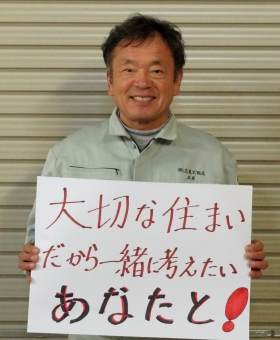 大切な住まい
だから一緒に考えたい
あなたと！